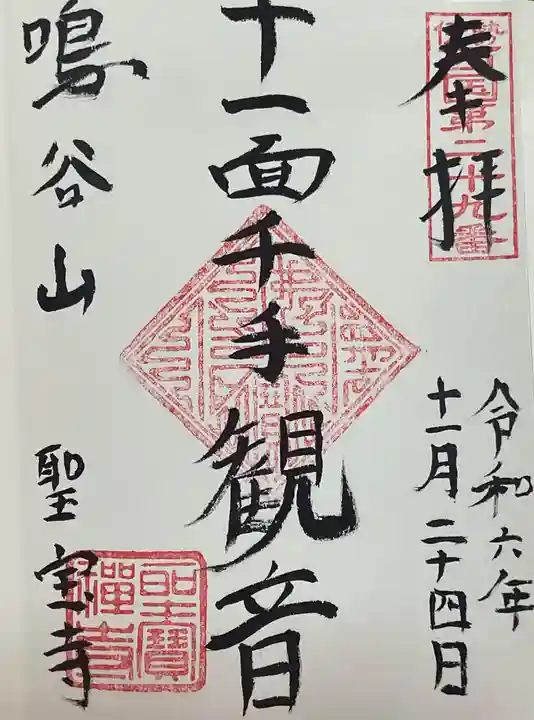 奉拝
勢国第二十九番
令和六年
十一月二十四日
十一面千手観音
鳴谷山
聖宝寺
聖寶禅寺